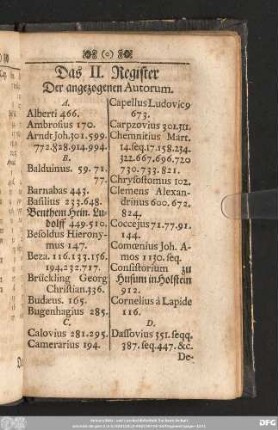 (o)
Das II. Register
Der angezogenen Autorum.
A.
Alberti 466.
Ambrosius 170.
Arndt Joh. 301. 599.
772. 828. 914. 994.
B.
Balduinus. 59. 71.
77.
Barnabas 443.
Basilius 233. 648.
Benthem Hein. Lu-
dolff 449. 510.
Besoldus Hierony-
mus 147.
Beza. 116. 133. 156.
194. 232. 717.
Brückling Georg
Christian. 336.
Budæus. 165.
Bugenhagius 285.
C.
Calovius 281. 295.
Camerarius 194.
Capellus Ludovic9
673.
Carpzovius 302. 511.
Chemnitius Mart.
14. seq. 17. 158. 234.
322. 667. 696. 720
730. 733. 821.
Chrysostomus 102.
Clemens Alexan-
drinus 600. 672.
824.
Coccejus 71. 77. 91.
144.
Comœnius Joh. A-
mos 1130. seq.
Consistorium zu
Husum in Holstein
912.
Cornelius á Lapide
116.
D.
Dassovius 351. seqq.
387. seq. 447. &c.
De-